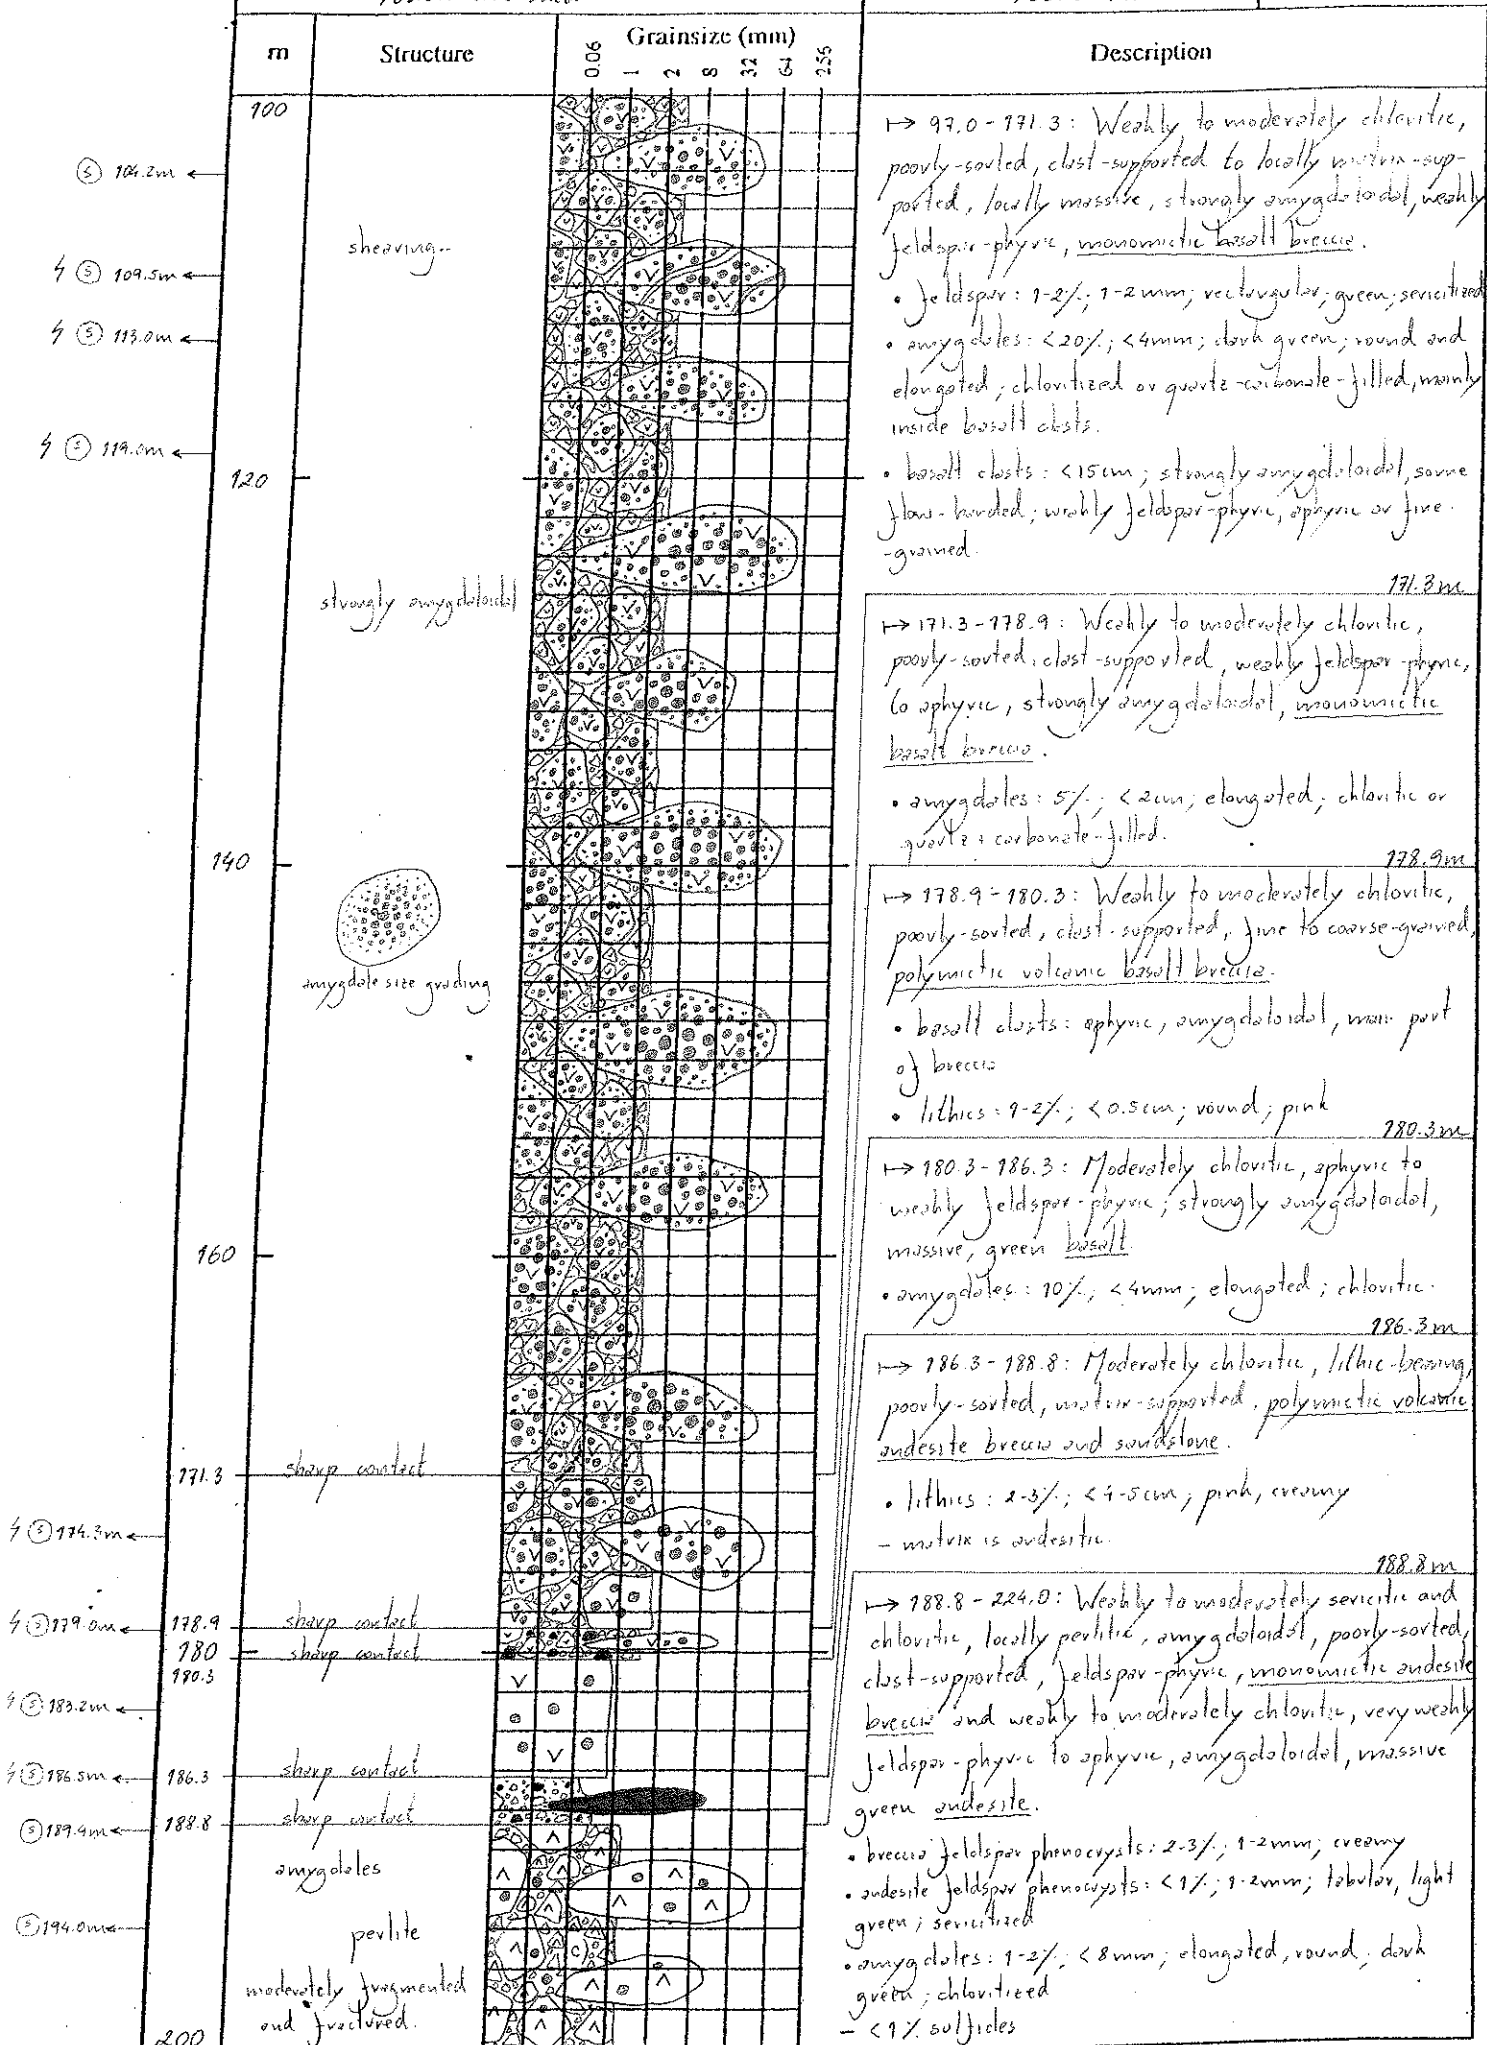 m
Structure
Grainsize (mm)
0.06 1 2 8 32 64 256
Description
100
Ⓢ 104.2m
shearing
ϟ Ⓢ 109.5m
ϟ Ⓢ 113.0m
ϟ Ⓢ 119.0m
120
strongly amygdaloidal
140
amygdale size grading
160
171.3 sharp contact
ϟ Ⓢ 174.3m
ϟ Ⓢ 179.0m
178.9 sharp contact
180 sharp contact
180.3
ϟ Ⓢ 183.2m
ϟ Ⓢ 186.5m
186.3 sharp contact
188.8 sharp contact
Ⓢ 189.4m
amygdales
Ⓢ 194.0m
perlite
moderately fragmented
and fractured.
200
↦ 97.0 - 171.3: Weakly to moderately chloritic,
poorly-sorted, clast-supported to locally matrix-sup-
ported, locally massive, strongly amygdaloidal, weakly
feldspar-phyric, monomictic basalt breccia.
• feldspar: 1-2%; 1-2mm; rectangular; green; sericitized
• amygdales: <20%; <4mm; dark green; round and
elongated; chloritized or quartz-carbonate-filled, mainly
inside basalt clasts.
• basalt clasts: <15cm; strongly amygdaloidal, some
flow-banded; weakly feldspar-phyric, aphyric or fine-
-grained.
171.3m
↦ 171.3 - 178.9: Weakly to moderately chloritic,
poorly-sorted, clast-supported, weakly feldspar-phyric,
to aphyric, strongly amygdaloidal, monomictic
basalt breccia.
• amygdales: 5%; <2cm; elongated; chloritic or
quartz + carbonate-filled.
178.9m
↦ 178.9 - 180.3: Weakly to moderately chloritic,
poorly-sorted, clast-supported, fine to coarse-grained,
polymictic volcanic basalt breccia.
• basalt clasts: aphyric, amygdaloidal, main part
of breccia
• lithics: 1-2%; <0.5cm; round; pink
180.3m
↦ 180.3 - 186.3: Moderately chloritic, aphyric to
weakly feldspar-phyric; strongly amygdaloidal,
massive, green basalt.
• amygdales: 10%; <4mm; elongated; chloritic.
186.3m
↦ 186.3 - 188.8: Moderately chloritic, lithic-bearing,
poorly-sorted, matrix-supported, polymictic volcanic
andesite breccia and sandstone.
• lithics: 2-3%; <4-5cm; pink, creamy
- matrix is andesitic.
188.8m
↦ 188.8 - 224.0: Weakly to moderately sericitic and
chloritic, locally perlitic, amygdaloidal, poorly-sorted,
clast-supported, feldspar-phyric, monomictic andesite
breccia and weakly to moderately chloritic, very weakly
feldspar-phyric to aphyric, amygdaloidal, massive
green andesite.
• breccia feldspar phenocrysts: 2-3%; 1-2mm; creamy
• andesite feldspar phenocrysts: <1%; 1-2mm; tabular, light
green; sericitized
• amygdales: 1-2%; <8mm; elongated, round; dark
green; chloritized
- <1% sulfides